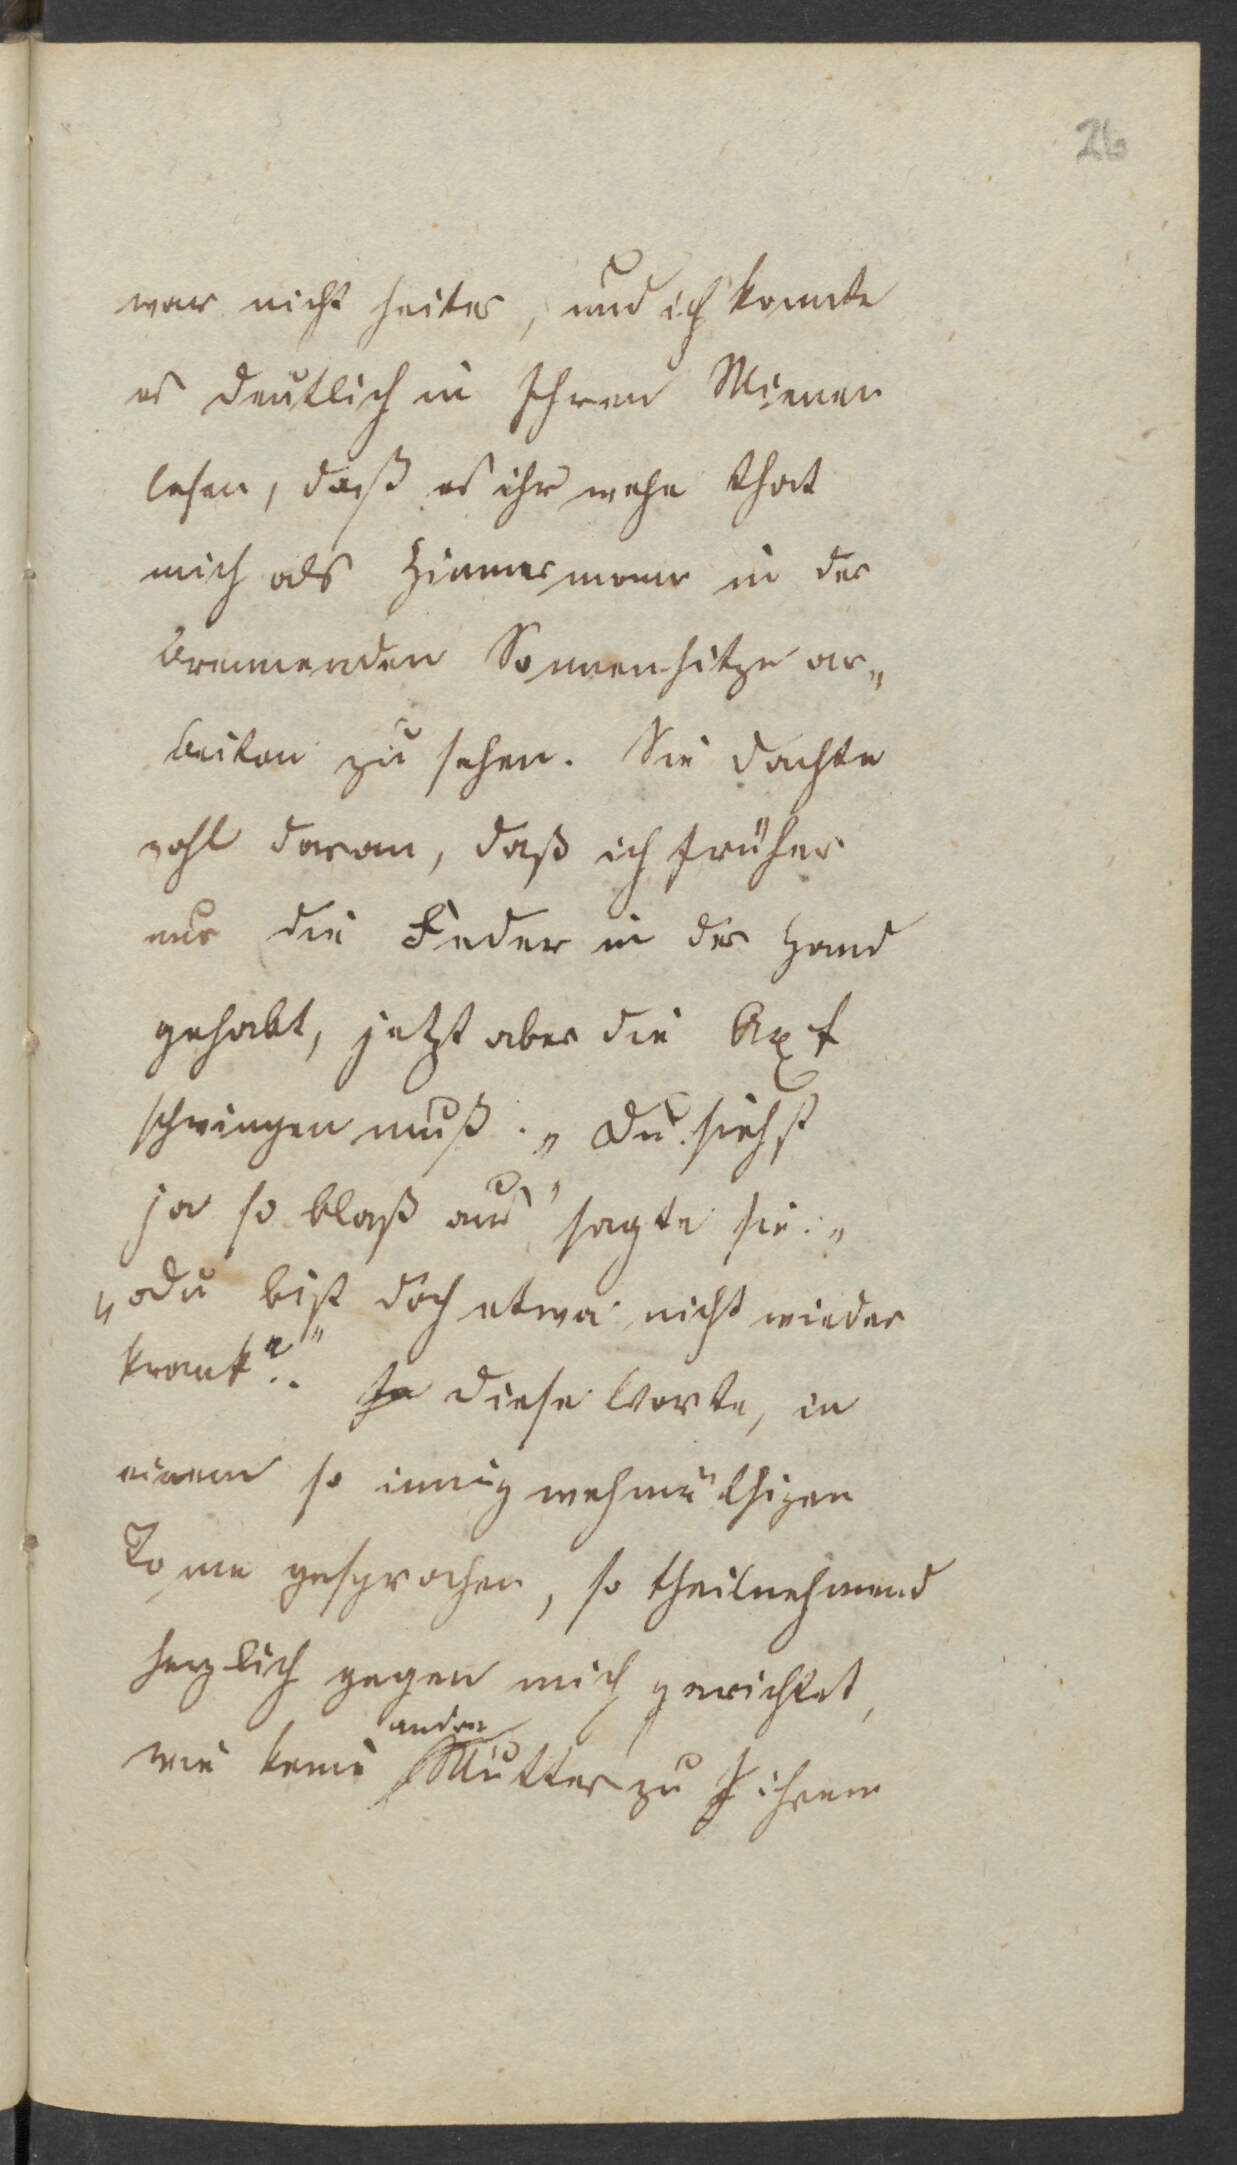 26
war nicht heiter, und ich konnte
es deutlich in Ihren Mienen
lesen, daß es ihr wehe that
mich als Zimmermann in der
brennenden Sonnenhitze ar„
beiten zu sehen. Sie dachte
wohl daran, daß ich früher
nur die Feder in der Hand
gehabt, jetzt aber die Axt
schwingen muß. „Du siehst
ja so blaß aus" sagte sie: „
„du bist doch etwa nicht wieder
krank?" diese Worte, in
einem so innig wehmüthigen
Tone gesprochen, so theilnehmend
herzlich gegen mich gerichtet,
andre
wie keine Mutter zu ihrem